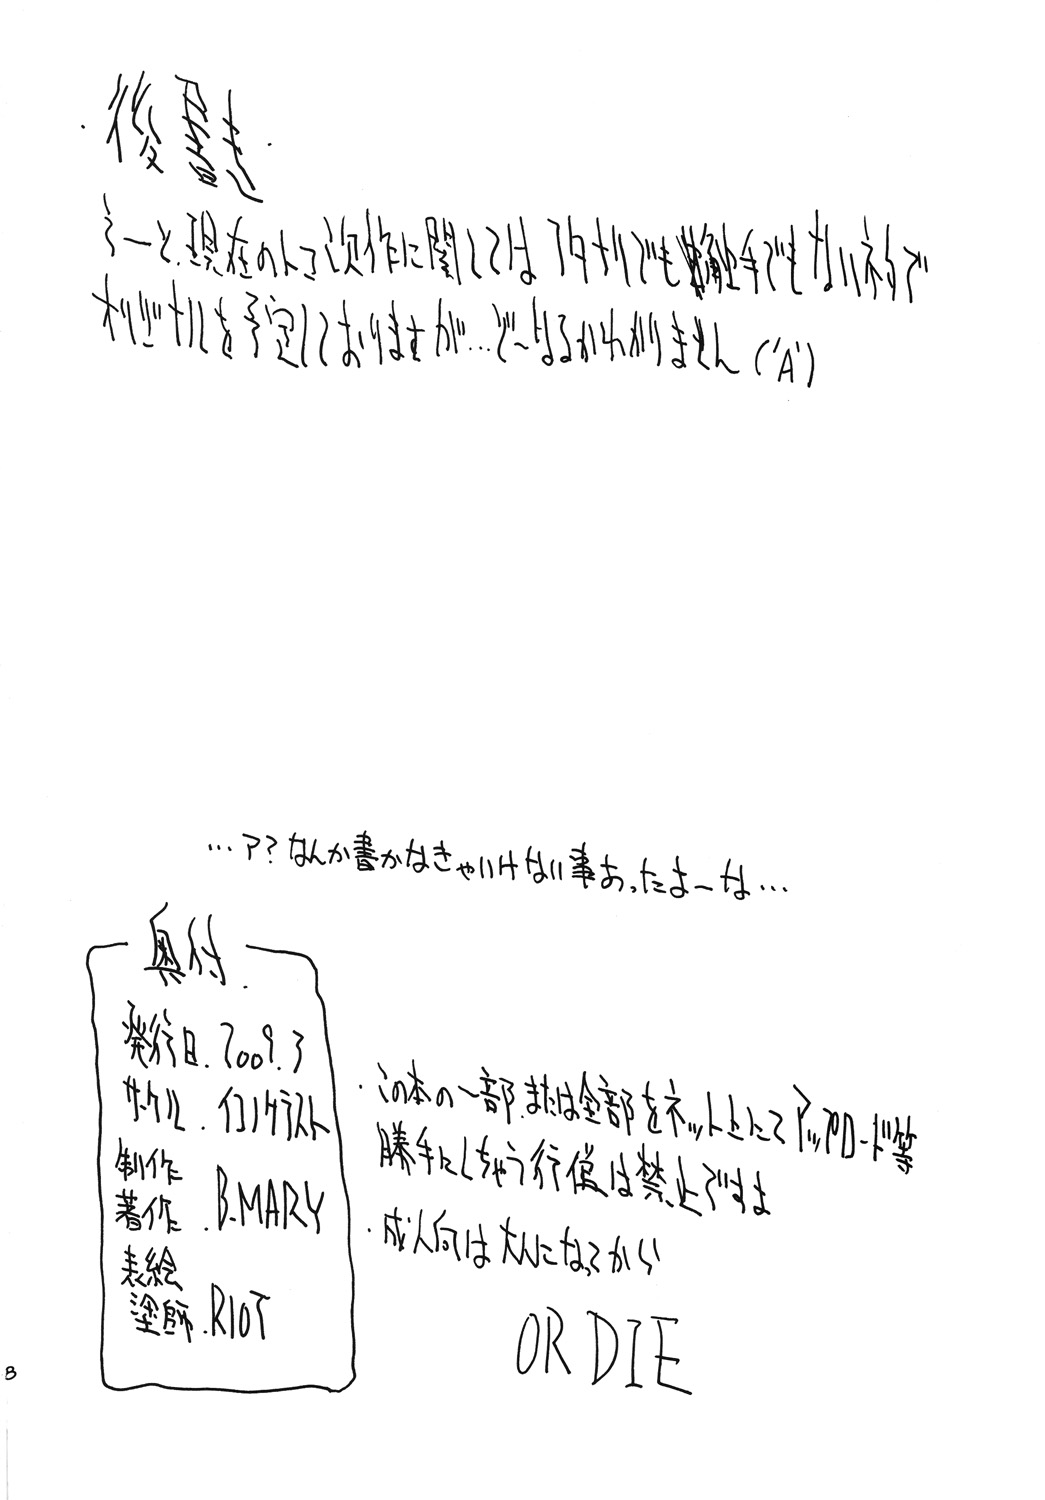 後書き
えーと、現在のトコ次作に関しては フタナリでも触手でもないネタで
オリジナルを予定しておりますが…ど〜なるかわかりません('A`)
…ア？なんか書かなきゃいけない事あったよーな…
奥付
発行日. 2009.3
サークル. イコノクラスト
制作
著作. B.MARY
表絵
塗師. RIOT
・この本の一部、または全部をネット上にてアップロード等
勝手にしちゃう行為は禁止ですよ
・成人向は大人になってから
OR DIE